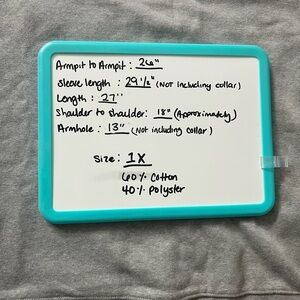 Armpit to Armpit: 26"
Sleeve length : 29 1/2" (NOT including collar)
Length : 27"
Shoulder to shoulder: 18" (Approximately)
Armhole : 13" (Not including collar)
Size: 1X
60% Cotton
40% Polyster